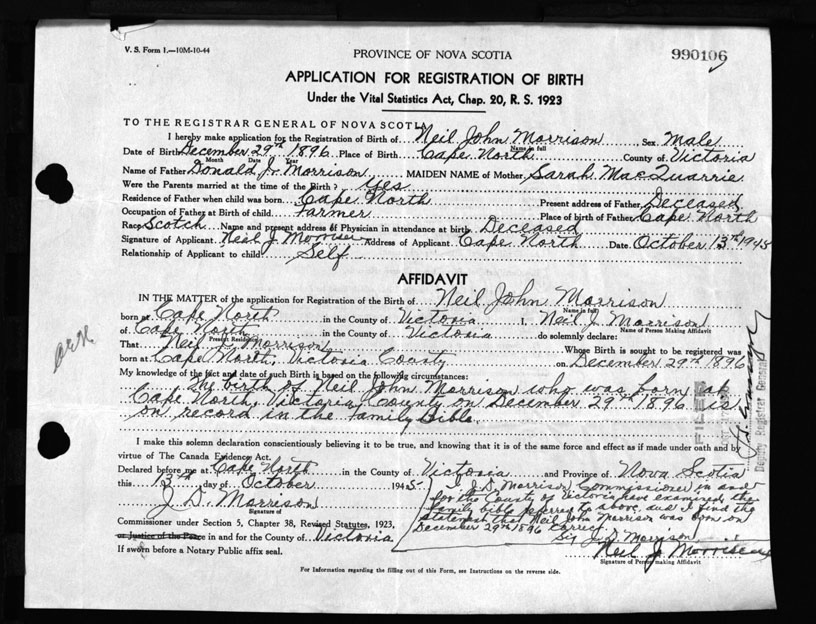 V. S. Form 1.—10M-10-44
PROVINCE OF NOVA SCOTIA
990106
APPLICATION FOR REGISTRATION OF BIRTH
Under the Vital Statistics Act, Chap. 20, R. S. 1923
TO THE REGISTRAR GENERAL OF NOVA SCOTIA
I hereby make application for the Registration of Birth of Neil John Morrison Sex Male
Name in full
Date of Birth December 29th 1896 Place of Birth Cape North County of Victoria
Month Date Year
Name of Father Donald J. Morrison MAIDEN NAME of Mother Sarah MacQuarrie
Were the Parents married at the time of the Birth? Yes
Residence of Father when child was born Cape North Present address of Father Deceased
Occupation of Father at Birth of child Farmer Place of birth of Father Cape North
Race Scotch Name and present address of Physician in attendance at birth Deceased
Signature of Applicant Neil J Morrison Address of Applicant Cape North Date October 13th 1945
Relationship of Applicant to child Self
AFFIDAVIT
IN THE MATTER of the application for Registration of the Birth of Neil John Morrison
(Name in full)
born at Cape North in the County of Victoria I, Neil J. Morrison
Name of Person Making Affidavit
of Cape North in the County of Victoria do solemnly declare:
Present Residence
That Neil J. Morrison Whose Birth is sought to be registered was
born at Cape North, Victoria County on December 29th 1896
My knowledge of the fact and date of such Birth is based on the following circumstances:
The birth of Neil John Morrison who was born at
Cape North, Victoria County on December 29th 1896 is
on record in the Family Bible.
I make this solemn declaration conscientiously believing it to be true, and knowing that it is of the same force and effect as if made under oath and by
virtue of The Canada Evidency Act.
Declared before me at Cape North in the County of Victoria and Province of Nova Scotia
this 13th day of October 1945
J. D. Morrison
Signature of
I, J. D. Morrison, Commissioner in and
for the County of Victoria have examined the
family bible referred to above and I find the
statement that Neil John Morrison was born on
December 29th 1896 correct.
Sig J. D. Morrison
Commissioner under Section 5, Chapter 38, Revised Statutes, 1923,
or Justice of the Peace in and for the County of Victoria
If sworn before a Notary Public affix seal.
Neil J Morrison
Signature of Person making Affidavit
For Information regarding the filling out of this Form, see Instructions on the reverse side.
FILED
Deputy Registrar General